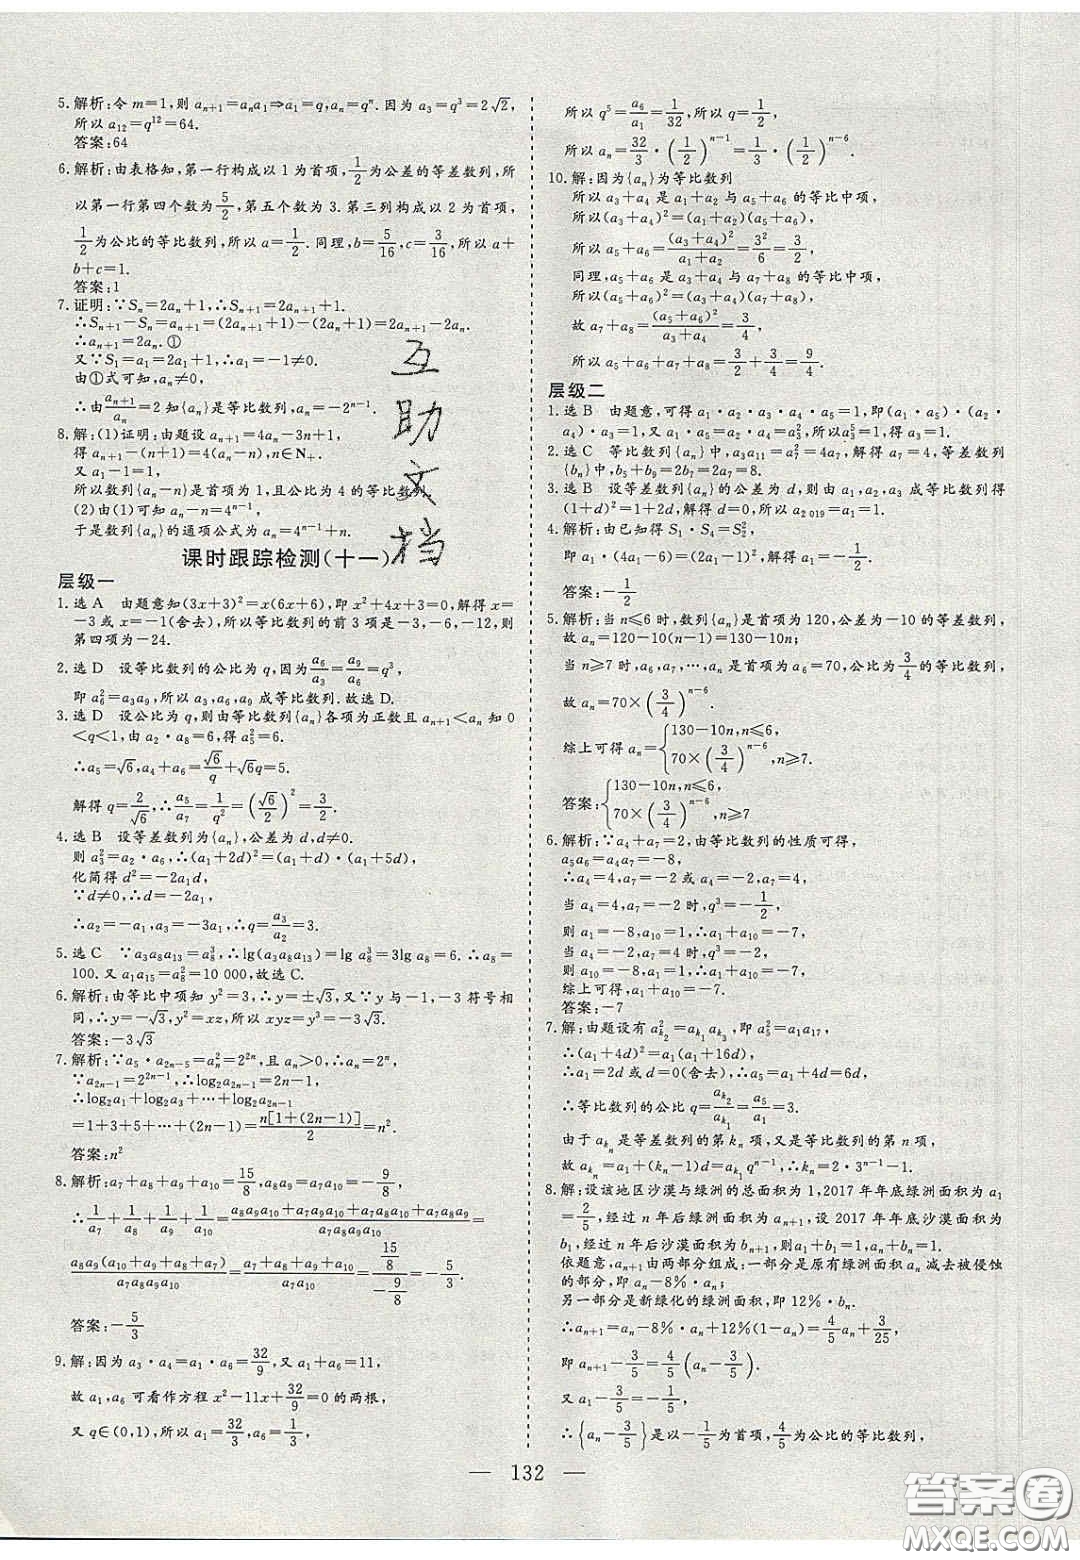 5.解析:令m=1,则aₙ₊₁=aₙa₁⇒a₁=q,aₙ=qⁿ.因为a₃=q³=2√2,
所以a₁₂=q¹²=64.
答案:64
6.解析:由表格知,第一行构成以1为首项,1/2为公差的等差数列,所
以第一行第四个数为5/2,第五个数为3.第三列构成以2为首项,
1/2为公比的等比数列,所以a=1/2.同理,b=5/16,c=3/16,故a+
b+c=1.
答案:1
7.证明:∵Sₙ=2aₙ+1,∴Sₙ₊₁=2aₙ₊₁+1.
∴Sₙ₊₁-Sₙ=aₙ₊₁=(2aₙ₊₁+1)-(2aₙ+1)=2aₙ₊₁-2aₙ.
∴aₙ₊₁=2aₙ.①
又∵S₁=a₁=2a₁+1,∴a₁=-1≠0.
由①式可知,aₙ≠0,
∴由aₙ₊₁/aₙ=2知{aₙ}是等比数列,aₙ=-2ⁿ⁻¹.
8.解:(1)证明:由题设aₙ₊₁=4aₙ-3n+1,
得aₙ₊₁-(n+1)=4(aₙ-n),n∈N₊.
又a₁-1=1,
所以数列{aₙ-n}是首项为1,且公比为4的等比数列.
(2)由(1)可知aₙ-n=4ⁿ⁻¹,
于是数列{aₙ}的通项公式为aₙ=4ⁿ⁻¹+n.
课时跟踪检测(十一)
层级一
1.选A 由题意知(3x+3)²=x(6x+6),即x²+4x+3=0,解得x=
-3或x=-1(舍去),所以等比数列的前3项是-3,-6,-12,则
第四项为-24.
2.选D 设等比数列的公比为q,因为a₆/a₃=a₉/a₆=q³,
即a₆²=a₃a₉,所以a₃,a₆,a₉成等比数列.故选D.
3.选D 设公比为q,则由等比数列{aₙ}各项为正数且aₙ₊₁<aₙ知0
<q<1,由a₂·a₈=6,得a₅²=6.
∴a₅=√6,a₄+a₆=√6/q+√6q=5.
解得q=2/√6,∴a₅/a₇=1/q²=(√6/2)²=3/2.
4.选B 设等差数列为{aₙ},公差为d,d≠0.
则a₃²=a₂·a₆,∴(a₁+2d)²=(a₁+d)·(a₁+5d),
化简得d²=-2a₁d,
∵d≠0,∴d=-2a₁,
∴a₂=-a₁,a₃=-3a₁,∴q=a₃/a₂=3.
5.选C ∵a₃a₈a₁₃=a₈³,∴lg(a₃a₈a₁₃)=lg a₈³=3lg a₈=6.∴a₈=
100.又a₁a₁₅=a₈²=10 000,故选C.
6.解析:由等比中项知y²=3,∴y=±√3,又∵y与-1,-3符号相
同,∴y=-√3,y²=xz,所以xyz=y³=-3√3.
答案:-3√3
7.解析:∵a₅·a₂ₙ₋₅=aₙ²=2²ⁿ,且aₙ>0,∴aₙ=2ⁿ,
∵a₂ₙ₋₁=2²ⁿ⁻¹,∴log₂a₂ₙ₋₁=2n-1,
∴log₂a₁+log₂a₃+…+log₂a₂ₙ₋₁
=1+3+5+…+(2n-1)=n[1+(2n-1)]/2=n².
答案:n²
8.解析:a₇+a₈+a₉+a₁₀=15/8,a₈a₉=a₇a₁₀=-9/8,
∴1/a₇+1/a₈+1/a₉+1/a₁₀=(a₈a₉a₁₀+a₇a₉a₁₀+a₇a₈a₁₀+a₇a₈a₉)/(a₇a₈a₉a₁₀)=
a₈a₉(a₁₀+a₈+a₉+a₇)/(a₇a₈a₉a₁₀)=(a₇+a₈+a₉+a₁₀)/(a₇a₁₀)=(15/8)/(-9/8)=-5/3.
答案:-5/3
9.解:因为a₃·a₄=a₁·a₆=32/9,又a₁+a₆=11,
故a₁,a₆可看作方程x²-11x+32/9=0的两根,
又q∈(0,1),所以a₁=32/3,a₆=1/3,
所以q⁵=a₆/a₁=1/32,所以q=1/2,
所以aₙ=32/3·(1/2)ⁿ⁻¹=1/3·(1/2)ⁿ⁻⁶.
10.解:因为{aₙ}为等比数列
所以a₃+a₄是a₁+a₂与a₅+a₆的等比中项,
所以(a₃+a₄)²=(a₁+a₂)(a₅+a₆),
所以a₅+a₆=(a₃+a₄)²/(a₁+a₂)=3²/6=3/2,
同理,a₅+a₆是a₃+a₄与a₇+a₈的等比中项,
所以(a₅+a₆)²=(a₃+a₄)(a₇+a₈),
故a₇+a₈=(a₅+a₆)²/(a₃+a₄)=3/4,
所以a₅+a₆+a₇+a₈=3/2+3/4=9/4.
层级二
1.选B 由题意,可得a₁·a₂·a₃·a₄·a₅=1,即(a₁·a₅)·(a₂·
a₄)·a₃=1,又a₁·a₅=a₂·a₄=a₃²,所以a₃⁵=1,得a₃=1.
2.选C 等比数列{aₙ}中,a₃a₁₁=a₇²=4a₇,解得a₇=4,等差数列
{bₙ}中,b₅+b₉=2b₇=2a₇=8.
3.选B 设等差数列{aₙ}的公差为d,则由a₁,a₂,a₃成等比数列得
(1+d)²=1+2d,解得d=0,所以a₂ ₀₁₉=a₁=1.
4.解析:由已知得S₁·S₄=S₂²,
即a₁·(4a₁-6)=(2a₁-1)²,解得a₁=-1/2.
答案:-1/2
5.解析:当n≤6时,数列{aₙ}是首项为120,公差为-10的等差数列,
故aₙ=120-10(n-1)=130-10n;
当n≥7时,a₆,a₇,…,aₙ是首项为a₆=70,公比为3/4的等比数列,
故aₙ=70×(3/4)ⁿ⁻⁶.
综上可得aₙ={130-10n,n≤6,
70×(3/4)ⁿ⁻⁶,n≥7.
答案:{130-10n,n≤6,
70×(3/4)ⁿ⁻⁶,n≥7
6.解析:∵a₄+a₇=2,由等比数列的性质可得,
a₅a₆=a₄a₇=-8,
∴a₄=4,a₇=-2或a₄=-2,a₇=4,
当a₄=4,a₇=-2时,q³=-1/2,
则a₁=-8,a₁₀=1,∴a₁+a₁₀=-7,
当a₄=-2,a₇=4时,q³=-2,
则a₁₀=-8,a₁=1,∴a₁+a₁₀=-7,
综上可得a₁+a₁₀=-7.
答案:-7
7.解:由题设有a²_{k₂}=a_{k₁}a_{k₃},即a₅²=a₁a₁₇,
∴(a₁+4d)²=a₁(a₁+16d),
∴a₁=2d或d=0(舍去),∴a₅=a₁+4d=6d,
∴等比数列的公比q=a_{k₂}/a_{k₁}=a₅/a₁=3.
由于a_{kₙ}是等差数列的第kₙ项,又是等比数列的第n项,
故a_{kₙ}=a₁+(kₙ-1)d=a_{k₁}qⁿ⁻¹,∴kₙ=2·3ⁿ⁻¹-1.
8.解:设该地区沙漠与绿洲的总面积为1,2017年年底绿洲面积为a₁
=2/5,经过n年后绿洲面积为aₙ₊₁,设2017年年底沙漠面积为
b₁,经过n年后沙漠面积为bₙ₊₁,则a₁+b₁=1,aₙ+bₙ=1.
依题意,aₙ₊₁由两部分组成:一部分是原有绿洲面积aₙ减去被侵蚀
的部分,即aₙ-8%·aₙ;
另一部分是新绿化的绿洲面积,即12%·bₙ.
∴aₙ₊₁=aₙ-8%·aₙ+12%(1-aₙ)=4/5aₙ+3/25,
即aₙ₊₁-3/5=4/5(aₙ-3/5).
又a₁-3/5=-1/5,
∴{aₙ-3/5}是以-1/5为首项,4/5为公比的等比数列,
互
助
文
档
— 132 —
答案圈
MXQE.COM